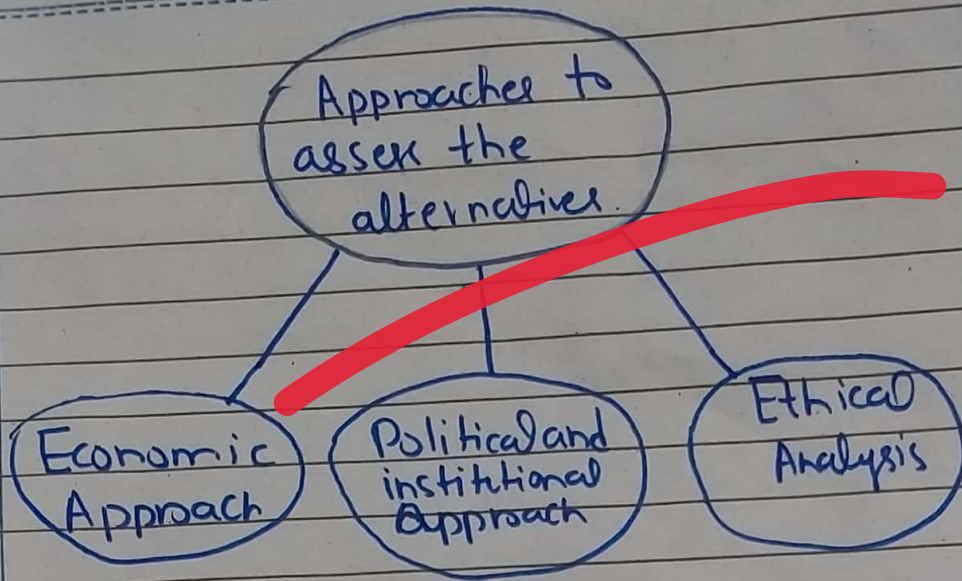 Approaches to
assess the
alternatives.
Economic
Approach
Political and
institutional
Approach
Ethical
Analysis